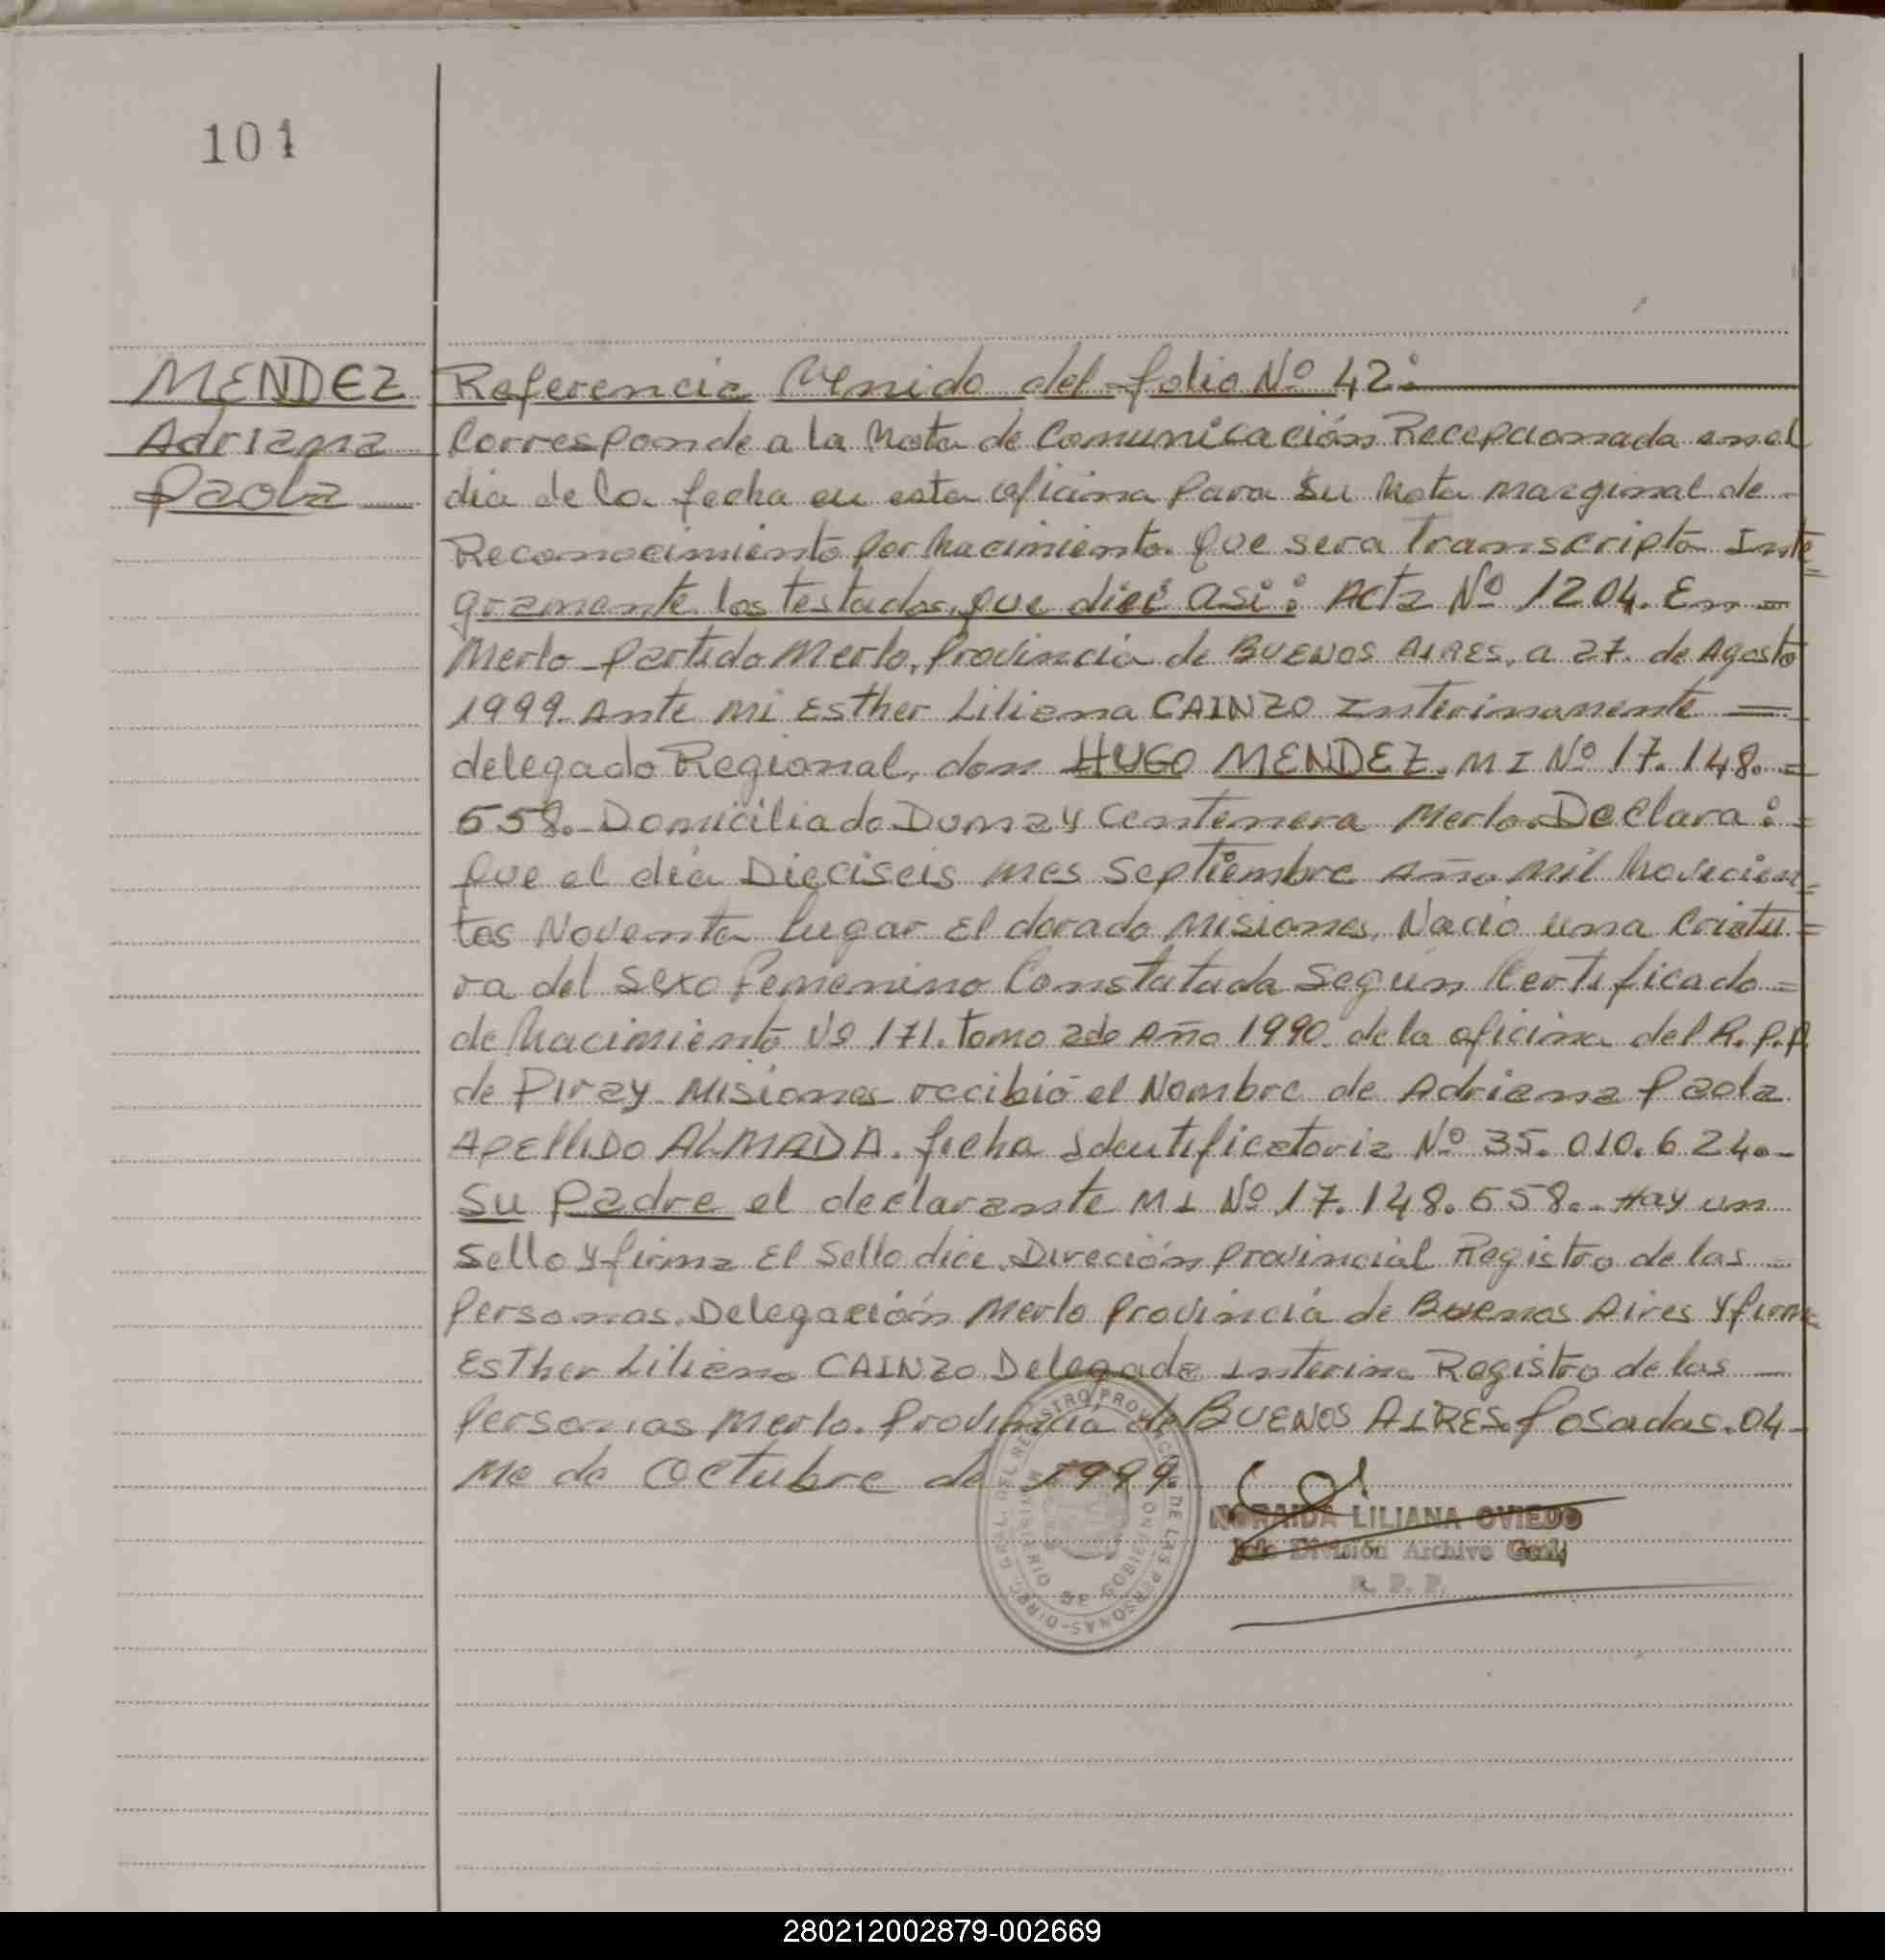 101
MENDEZ
Adriana
Paola
Referencia Venido del folio Nº 42:
Corresponde a la Nota de Comunicación Recepcionada en el
dia de la fecha en esta oficina Para Su Nota marginal de
Reconocimiento por Nacimiento que sera Transcripto Inte=
gramente los testados, que dice asi: Acta Nº 1204. En =
Merlo Partido Merlo, Provincia de BUENOS AIRES, a 27. de Agosto
1999. Ante mi Esther Liliana CAINZO Interinamente =
delegado Regional, don HUGO MENDEZ. M I Nº 17.148. =
558.- Domiciliado Duma y Centenera Merlo. Declara: =
que el dia Dieciseis mes Septiembre Año mil Novecien=
tos Noventa Lugar El dorado Misiones, Nacio una Criatu=
ra del sexo femenino Constatada Según Certificado =
de Nacimiento Nº 171. Tomo 2do Año 1990. de la oficina del R.P.P.
de Piray Misiones recibió el Nombre de Adriana Paola
Apellido ALMADA. ficha Identificatoria Nº 35.010.624.-
Su Padre el declarante M I Nº 17.148.558.- Hay un
Sello y firma El Sello dice. Direción Provincial Registro de las -
Personas. Delegación Merlo Provincia de Buenos Aires y firma
Esther Liliana CAINZO Delegada Interina Registro de las -
Personas Merlo. Provincia de BUENOS AIRES. Posadas. 04 -
me de Octubre de 1999.
NORAIDA LILIANA OVIEDO
Jefe División Archivo Gral.
R. P. P.
DIREC. GRAL. DEL REGISTRO PROVINCIAL DE LAS PERSONAS
MINISTERIO DE GOBIERNO
280212002879-002669